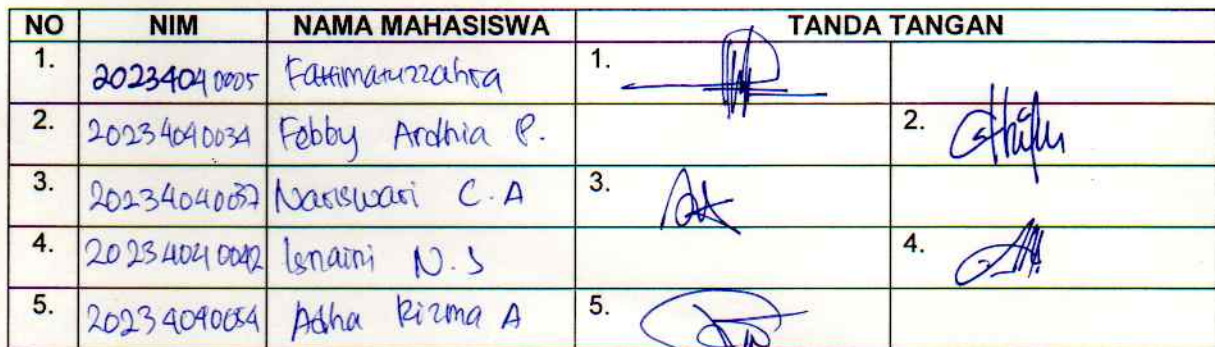 NO NIM NAMA MAHASISWA TANDA TANGAN
1. 20234040005 Fattimatuzzahra 1.
2. 20234040034 Febby Ardhia P. 2.
3. 20234040037 Nariswari C.A 3.
4. 20234040042 Isnaini N.S 4.
5. 20234040054 Adha Rizma A 5.